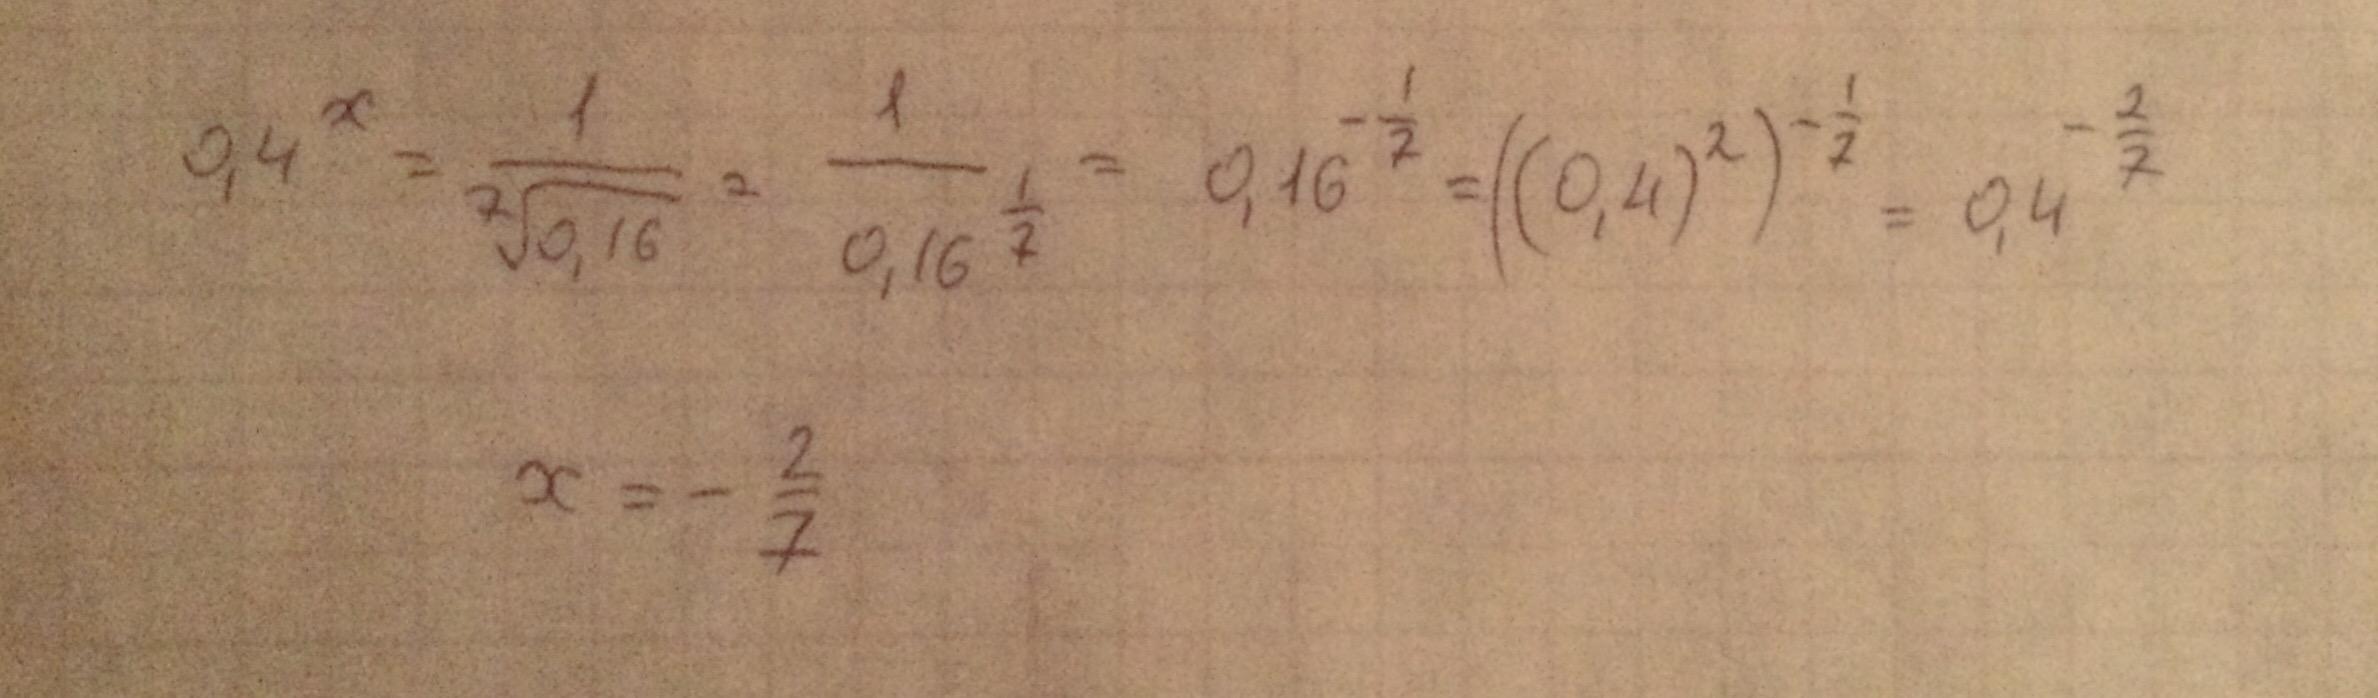 0,4^x = 1/⁷√0,16 = 1/0,16^(1/7) = 0,16^(-1/7) = ((0,4)^2)^(-1/7) = 0,4^(-2/7)
x = -2/7